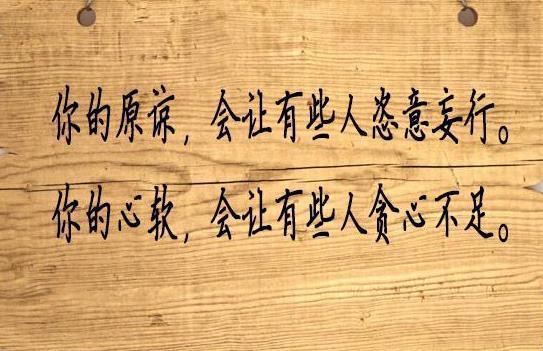 你的原谅，会让有些人恣意妄行。
你的心软，会让有些人贪心不足。